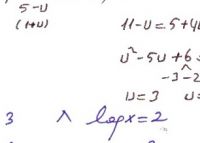 5-u
(1+u)
11-u=5+4u
u²-5u+6=
-3 -2
u=3 u=
3 ∧ logx=2